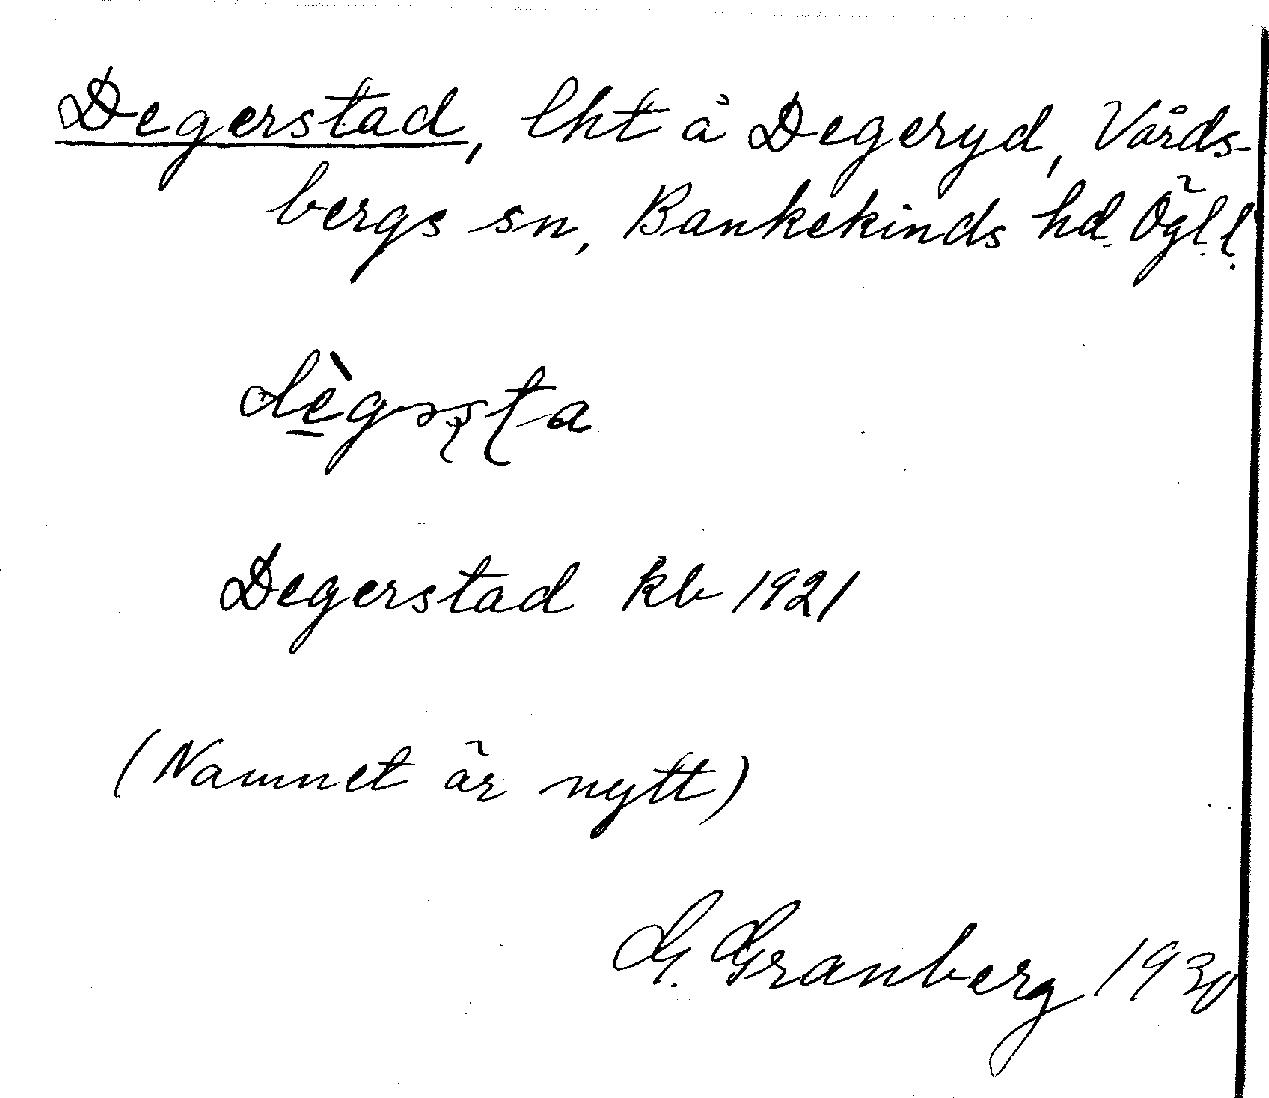 Degerstad, lht å Degeryd, Vårds-
bergs sn, Bankekinds hd. Ögl. l.
dè̠gəʂʈa
Degerstad kb 1921
(Namnet är nytt)
G. Granberg 1930